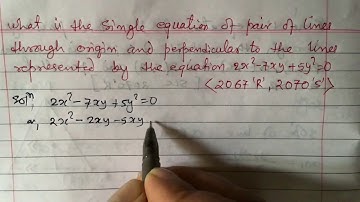 what is the single equation of pair of lines
through origin and perpendicular to the lines
represented by the equation 2x²-7xy+5y²=0
<2067 'R', 2070 'S'>
Solⁿ 2x²-7xy+5y²=0
or, 2x²-2xy-5xy